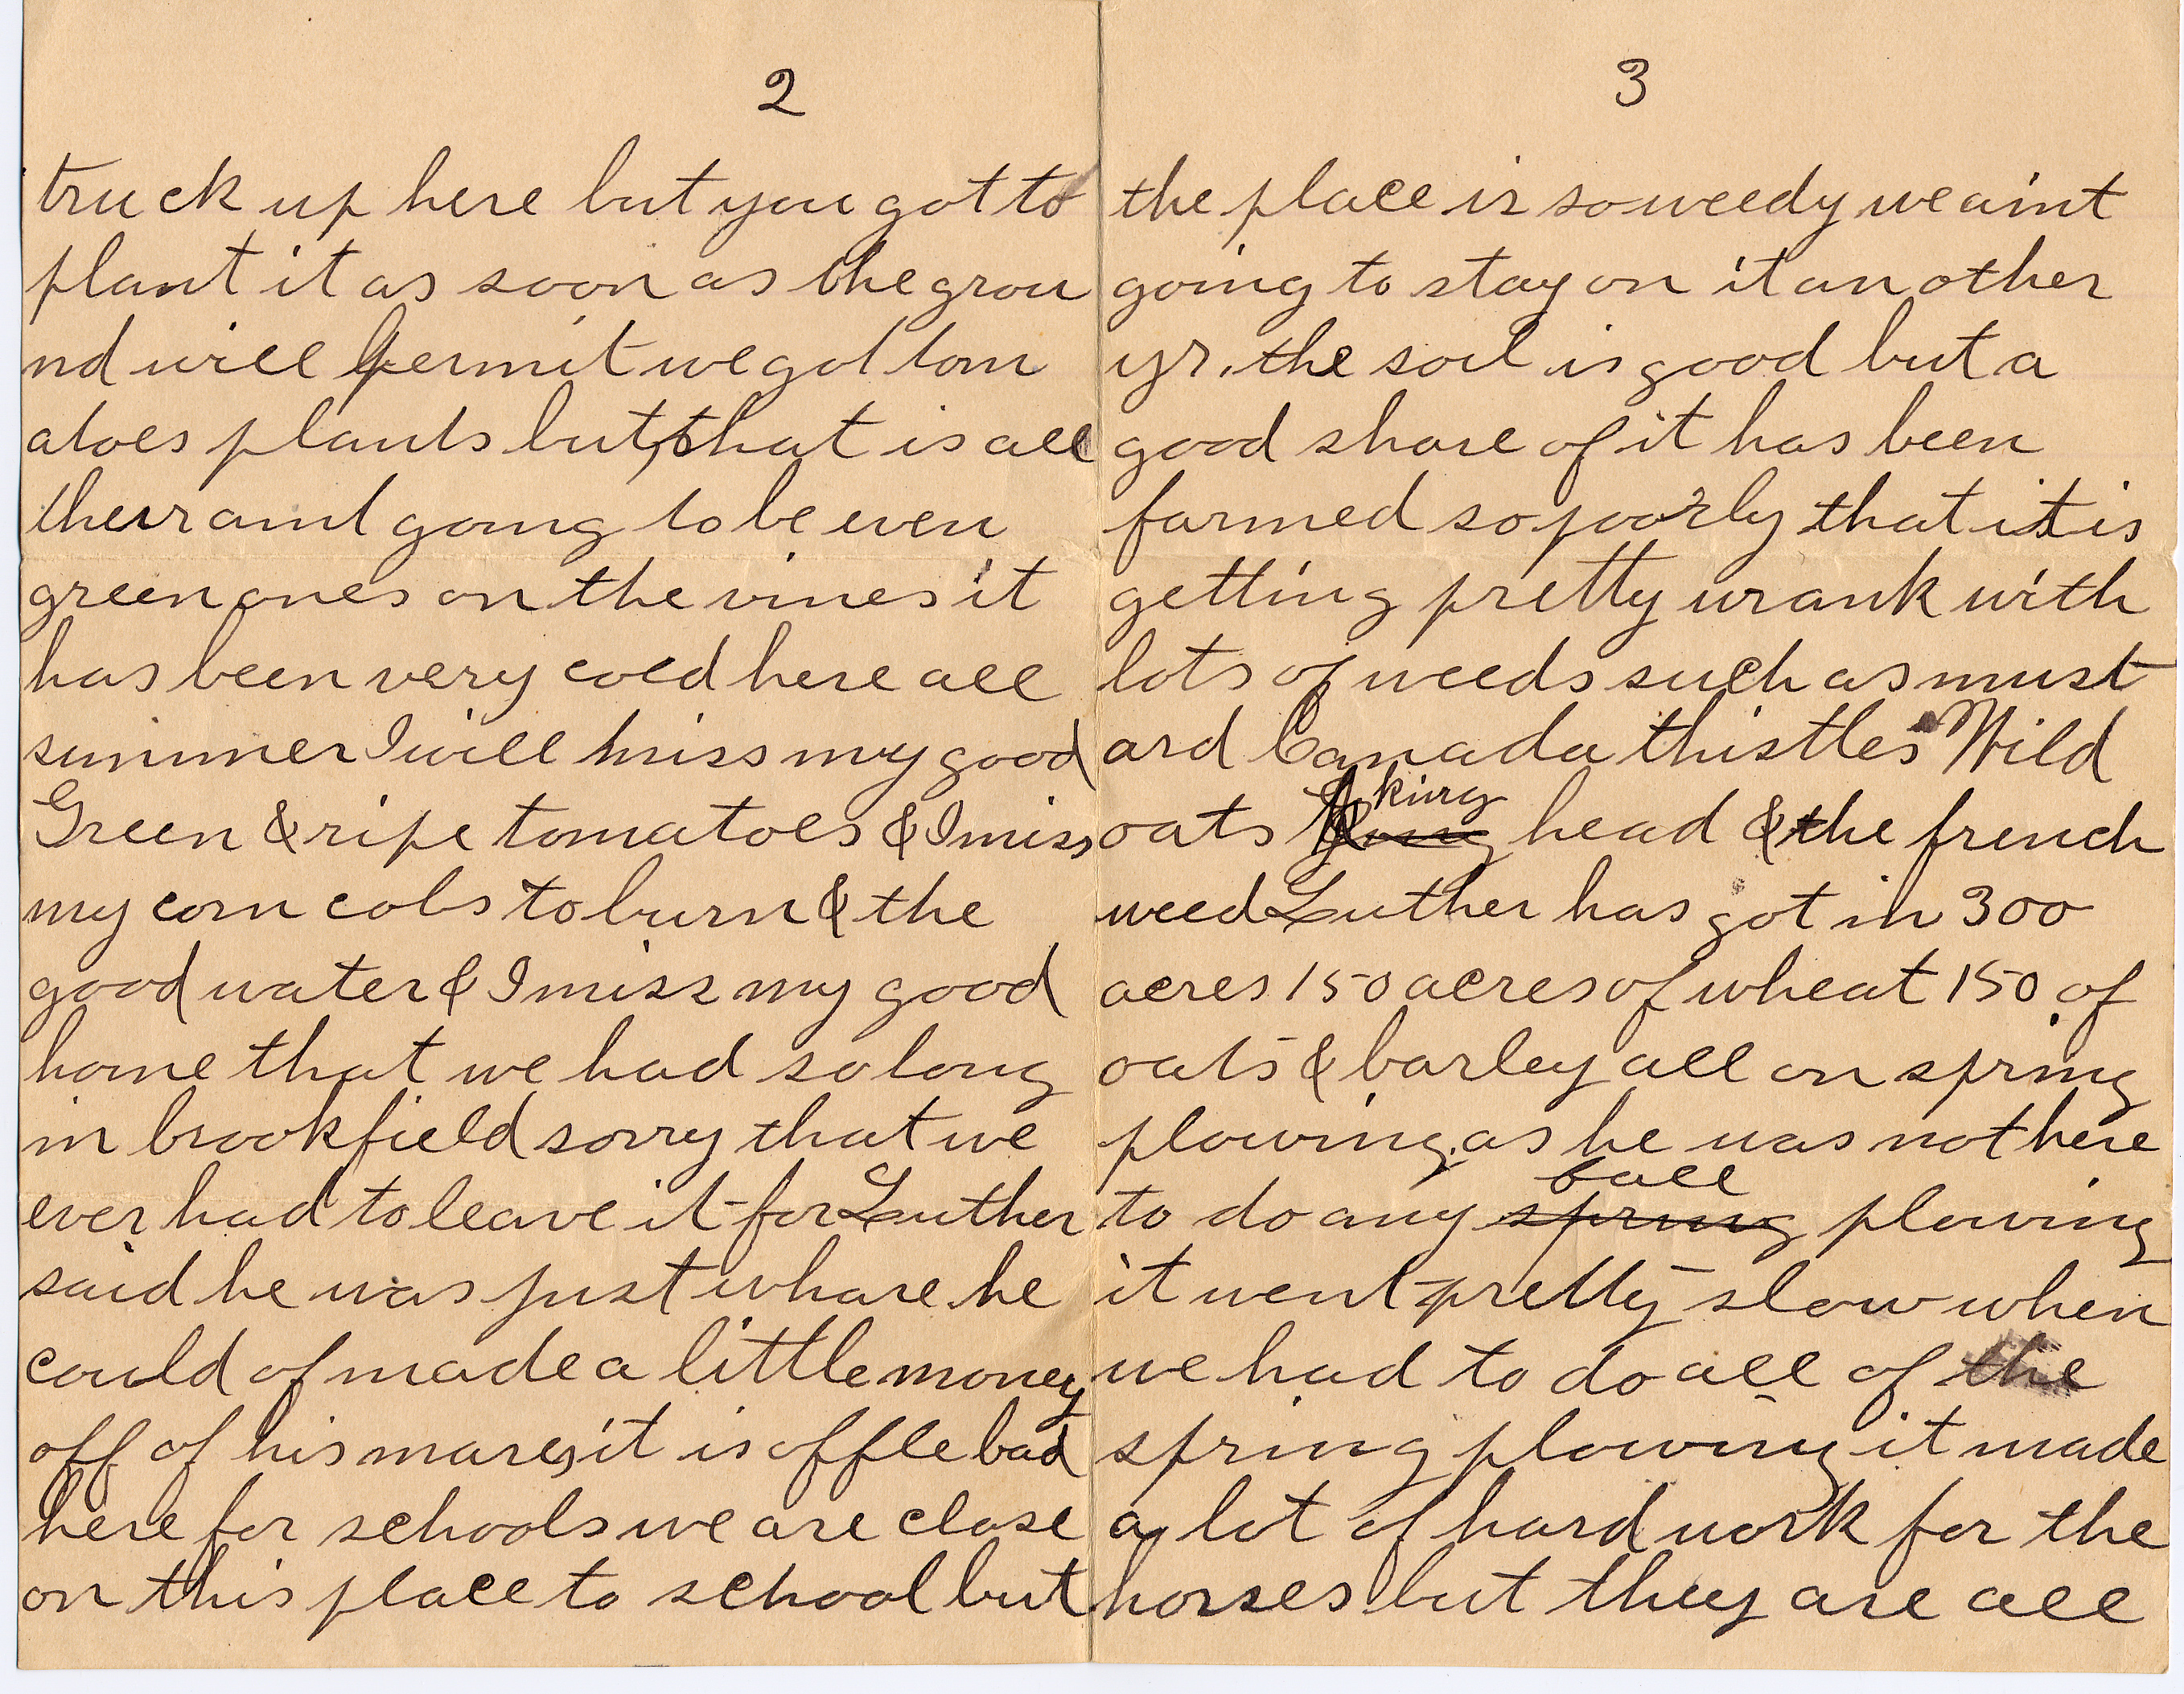 2
truck up here but you got to
plant it as soon as the grou
nd will permit we got tom
atoes plants but that is all
ther aint going to be even
green ones on the vines it
has been very cold here all
summer I will miss my good
Green & ripe tomatoes & I miss
my corn cobs to burn & the
good water & I miss my good
home that we had so long
in brookfield sorry that we
ever had to leave it for Luther
said he was just whare he
could of made a little money
off of his mares, it is offle bad
here for schools we are close
on this place to school but
3
the place is so weedy we aint
going to stay on it an other
yr. the soil is good but a
good share of it has been
farmed so poorly that it is
getting pretty wrank with
lots of weeds such as must
ard Canada thistles Wild
oats king head & the french
weed Luther has got in 300
acres 150 acres of wheat 150 of
oats & barley all on spring
plowing as he was not here
to do any spring fall plowing
it went pretty slow when
we had to do all of the
spring plowing it made
a lot of hard work for the
horses but they are all